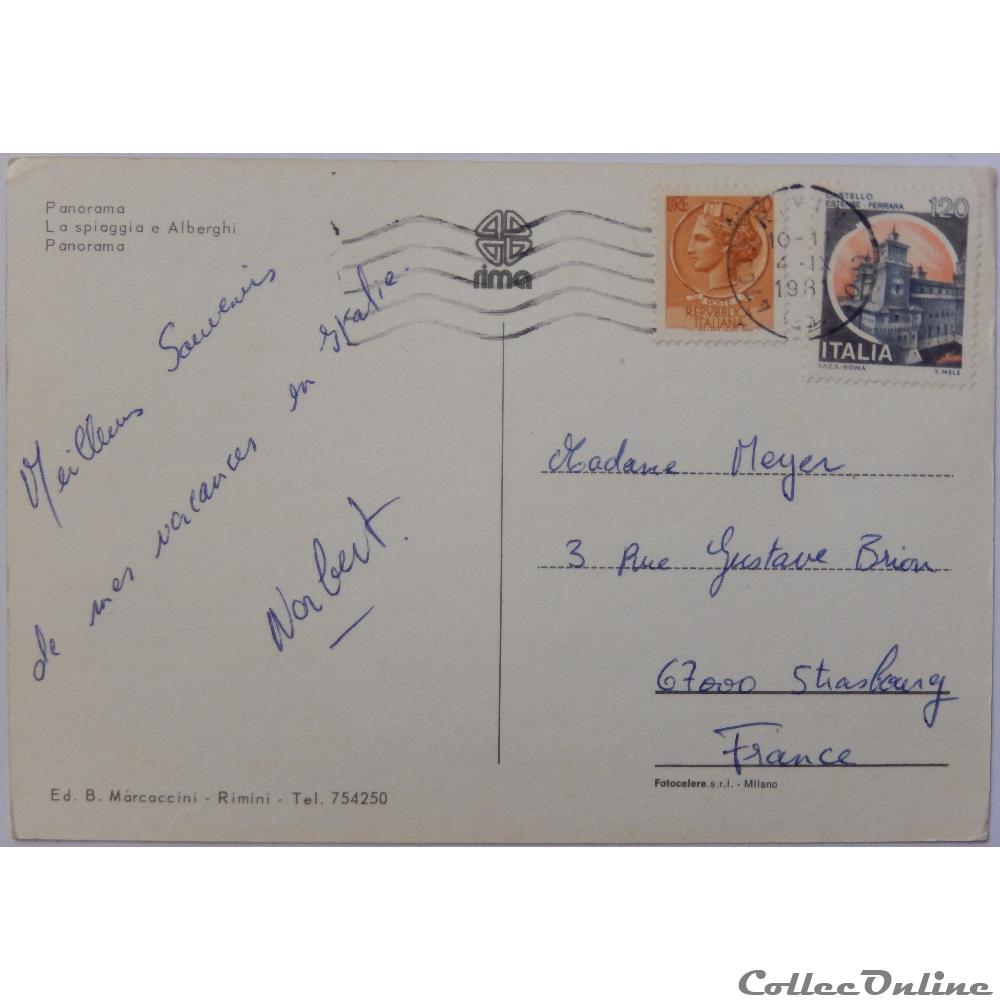 Panorama
La spiaggia e Alberghi
Panorama
rima
Meilleurs Souvenirs
de mes vacances en Italie.
Norbert.
LIRE
POSTE
REPVBBLICA
ITALIANA
10-1
4-IX
1981
CASTELLO
ESTENSE - FERRARA
120
ITALIA
I.P.Z.S.-ROMA
T. MELE
Madame Meyer
3 Rue Gustave Brion
67000 Strasbourg
France
Fotocelere s.r.l. - Milano
Ed. B. Màrcaccini - Rimini - Tel. 754250
CollecOnline